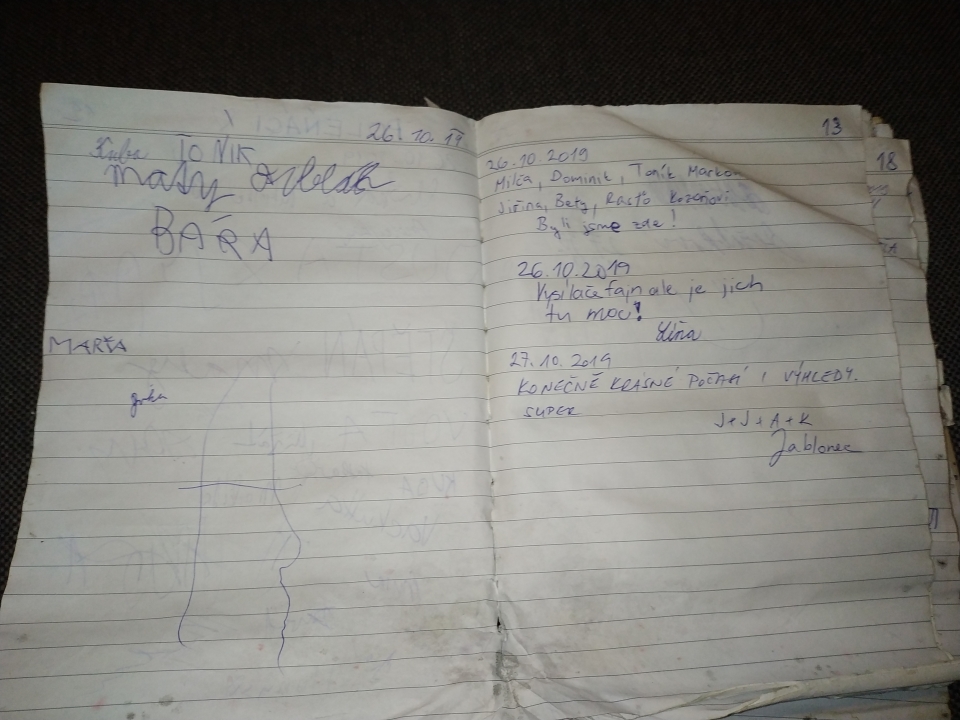 26. 10. 19
Kuba TONIK
Maty
BÁRA
MARŤA
13
26.10.2019
Milča, Dominik, Toník
Jiřina, Bety, Rasťo Kozeňovi
Byli jsme zde!
26.10.2019
Vysílače fajn ale je jich
tu moc!
27.10.2019
KONEČNĚ KRÁSNÉ POČASÍ I VÝHLEDY.
SUPER
J+J+A+K
Jablonec
18